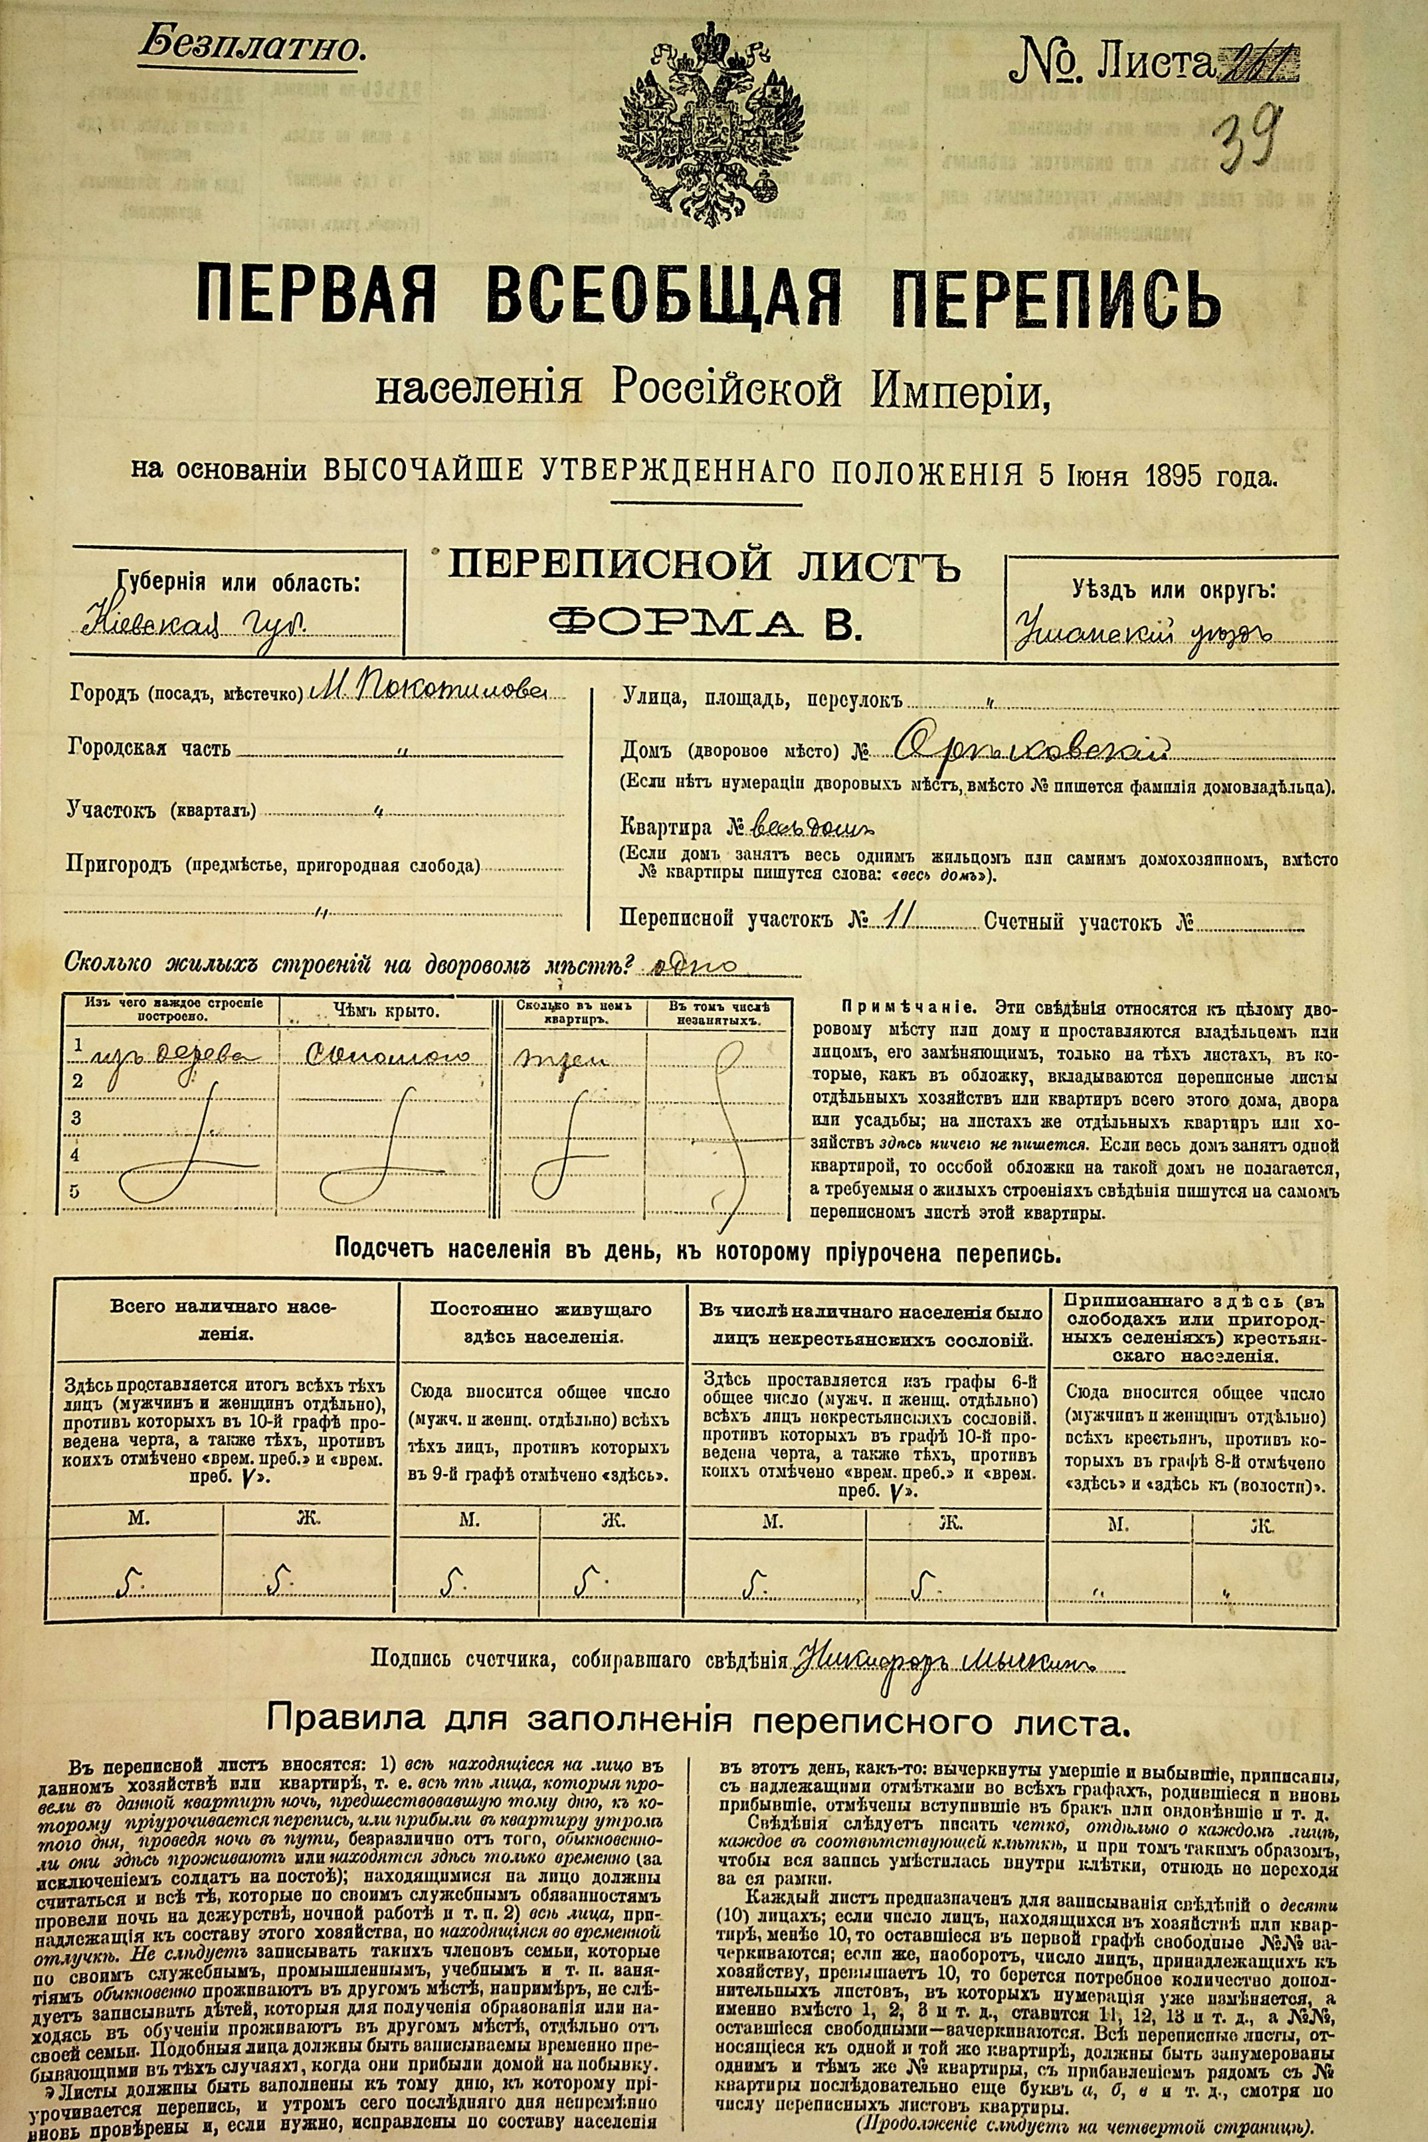 Безплатно.
№. Листа 261
39
ПЕРВАЯ ВСЕОБЩАЯ ПЕРЕПИСЬ
населенія Россійской Имперіи,
на основаніи ВЫСОЧАЙШЕ УТВЕРЖДЕННАГО ПОЛОЖЕНІЯ 5 Іюня 1895 года.
ПЕРЕПИСНОЙ ЛИСТЪ
ФОРМА В.
Губернія или область:
Кіевская губ.
Уѣздъ или округъ:
Уманскій уѣздъ
Городъ (посадъ, мѣстечко) М. Покотилова
Городская часть "
Участокъ (кварталъ) "
Пригородъ (предмѣстье, пригородная слобода)
"
Улица, площадь, переулокъ "
Домъ (дворовое мѣсто) №
(Если нѣтъ нумераціи дворовыхъ мѣстъ, вмѣсто № пишется фамилія домовладѣльца).
Квартира № весь домъ
(Если домъ занятъ весь однимъ жильцомъ или самимъ домохозяиномъ, вмѣсто
№ квартиры пишутся слова: «весь домъ»).
Переписной участокъ № 11 Счетный участокъ №
Сколько жилыхъ строеній на дворовомъ мѣстѣ? одно
Изъ чего каждое строеніе построено.
Чѣмъ крыто.
Сколько въ немъ квартиръ.
Въ томъ числѣ незанятыхъ.
1 изъ дерева соломою три
2
3
4
5
Примѣчаніе. Эти свѣдѣнія относятся къ цѣлому дво-
ровому мѣсту или дому и проставляются владѣльцемъ или
лицомъ, его замѣняющимъ, только на тѣхъ листахъ, въ ко-
торые, какъ въ обложку, вкладываются переписные листы
отдѣльныхъ хозяйствъ или квартиръ всего этого дома, двора
или усадьбы; на листахъ же отдѣльныхъ квартиръ или хо-
зяйствъ здѣсь ничего не пишется. Если весь домъ занятъ одной
квартирой, то особой обложки на такой домъ не полагается,
а требуемыя о жилыхъ строеніяхъ свѣдѣнія пишутся на самомъ
переписномъ листѣ этой квартиры.
Подсчетъ населенія въ день, къ которому пріурочена перепись.
Всего наличнаго насе-
ленія.
Здѣсь проставляется итогъ всѣхъ тѣхъ
лицъ (мужчинъ и женщинъ отдѣльно),
противъ которыхъ въ 10-й графѣ про-
ведена черта, а также тѣхъ, противъ
коихъ отмѣчено «врем. преб.» и «врем.
преб. V».
Постоянно живущаго
здѣсь населенія.
Сюда вносится общее число
(мужч. и женщ. отдѣльно) всѣхъ
тѣхъ лицъ, противъ которыхъ
въ 9-й графѣ отмѣчено «здѣсь».
Въ числѣ наличнаго населенія было
лицъ некрестьянскихъ сословій.
Здѣсь проставляется изъ графы 6-й
общее число (мужч. и женщ. отдѣльно)
всѣхъ лицъ некрестьянскихъ сословій.
противъ которыхъ въ графѣ 10-й про-
ведена черта, а также тѣхъ, противъ
коихъ отмѣчено «врем. преб.» и «врем.
преб. V».
Приписаннаго здѣсь (въ
слободахъ или пригород-
ныхъ селеніяхъ) крестьян-
скаго населенія.
Сюда вносится общее число
(мужчинъ и женщинъ отдѣльно)
всѣхъ крестьянъ, противъ ко-
торыхъ въ графѣ 8-й отмѣчено
«здѣсь» и «здѣсь къ (волости)».
М. Ж. М. Ж. М. Ж. М. Ж.
5. 5. 5. 5. 5. 5. " "
Подпись счетчика, собиравшаго свѣдѣнія Никифоръ Мышкинъ
Правила для заполненія переписного листа.
Въ переписной листъ вносятся: 1) всѣ находящіеся на лицо въ
данномъ хозяйствѣ или квартирѣ, т. е. всѣ тѣ лица, которыя про-
вели въ данной квартирѣ ночь, предшествовавшую тому дню, къ ко-
торому пріурочивается перепись, или прибыли въ квартиру утромъ
того дня, проведя ночь въ пути, безразлично отъ того, обыкновенно-
ли они здѣсь проживаютъ или находятся здѣсь только временно (за
исключеніемъ солдатъ на постоѣ); находящимися на лицо должны
считаться и всѣ тѣ, которые по своимъ служебнымъ обязанностямъ
провели ночь на дежурствѣ, ночной работѣ и т. п. 2) всѣ лица, при-
надлежащія къ составу этого хозяйства, но находящіяся во временной
отлучкѣ. Не слѣдуетъ записывать такихъ членовъ семьи, которые
по своимъ служебнымъ, промышленнымъ, учебнымъ и т. п. заня-
тіямъ обыкновенно проживаютъ въ другомъ мѣстѣ, напримѣръ, не слѣ-
дуетъ записывать дѣтей, которыя для полученія образованія или на-
ходясь въ обученіи проживаютъ въ другомъ мѣстѣ, отдѣльно отъ
своей семьи. Подобныя лица должны быть записываемы временно пре-
бывающими въ тѣхъ случаяхъ, когда они прибыли домой на побывку.
Листы должны быть заполнены къ тому дню, къ которому прі-
урочивается перепись, и утромъ сего послѣдняго дня непремѣнно
вновь провѣрены и, если нужно, исправлены по составу населенія
въ этотъ день, какъ-то: вычеркнуты умершіе и выбывшіе, приписаны,
съ надлежащими отмѣтками во всѣхъ графахъ, родившіеся и вновь
прибывшіе, отмѣчены вступившіе въ бракъ или овдовѣвшіе и т. д.
Свѣдѣнія слѣдуетъ писать четко, отдѣльно о каждомъ лицѣ,
каждое въ соотвѣтствующей клѣткѣ, и при томъ такимъ образомъ,
чтобы вся запись умѣстилась внутри клѣтки, отнюдь не переходя
за ея рамки.
Каждый листъ предназначенъ для записыванія свѣдѣній о десяти
(10) лицахъ; если число лицъ, находящихся въ хозяйствѣ или квар-
тирѣ, менѣе 10, то оставшіеся въ первой графѣ свободные №№ за-
черкиваются; если же, наоборотъ, число лицъ, принадлежащихъ къ
хозяйству, превышаетъ 10, то берется потребное количество допол-
нительныхъ листовъ, въ которыхъ нумерація уже измѣняется, а
именно вмѣсто 1, 2, 3 и т. д., ставится 11, 12, 13 и т. д., а №№,
оставшіеся свободными—зачеркиваются. Всѣ переписные листы, от-
носящіеся къ одной и той же квартирѣ, должны быть занумерованы
однимъ и тѣмъ же № квартиры, съ прибавленіемъ рядомъ съ №
квартиры послѣдовательно еще буквъ а, б, в и т. д., смотря по
числу переписныхъ листовъ квартиры.
(Продолженіе слѣдуетъ на четвертой страницѣ).